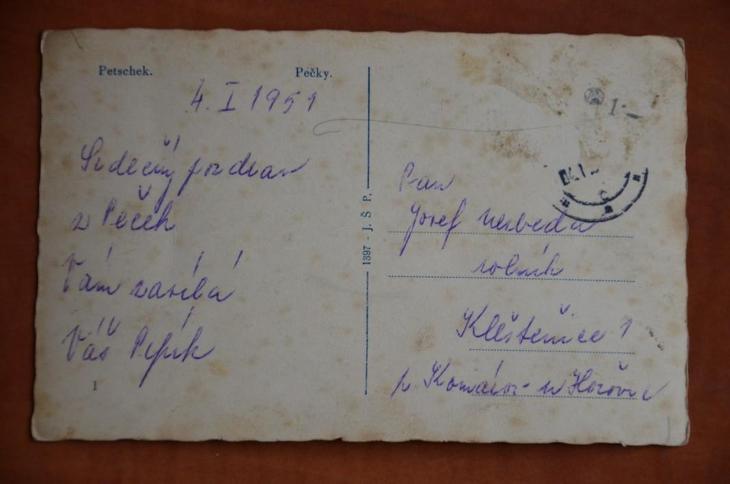 Petschek. Pečky.
4. I 1951
Srdečný pozdrav
z Peček
Vám zasílá
Váš Pepík
1
1397 - J. Š P.
1·-
04.1
Pan
Josef Nesveda
rolník
Kleštěnice 1
p. Komárov u Hořovic